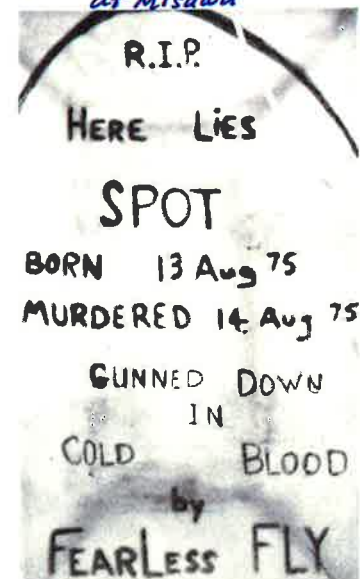 at Misawa
R.I.P.
HERE LIES
SPOT
BORN 13 Aug 75
MURDERED 14 Aug 75
GUNNED DOWN
IN
COLD BLOOD
by
FEARLESS FLY